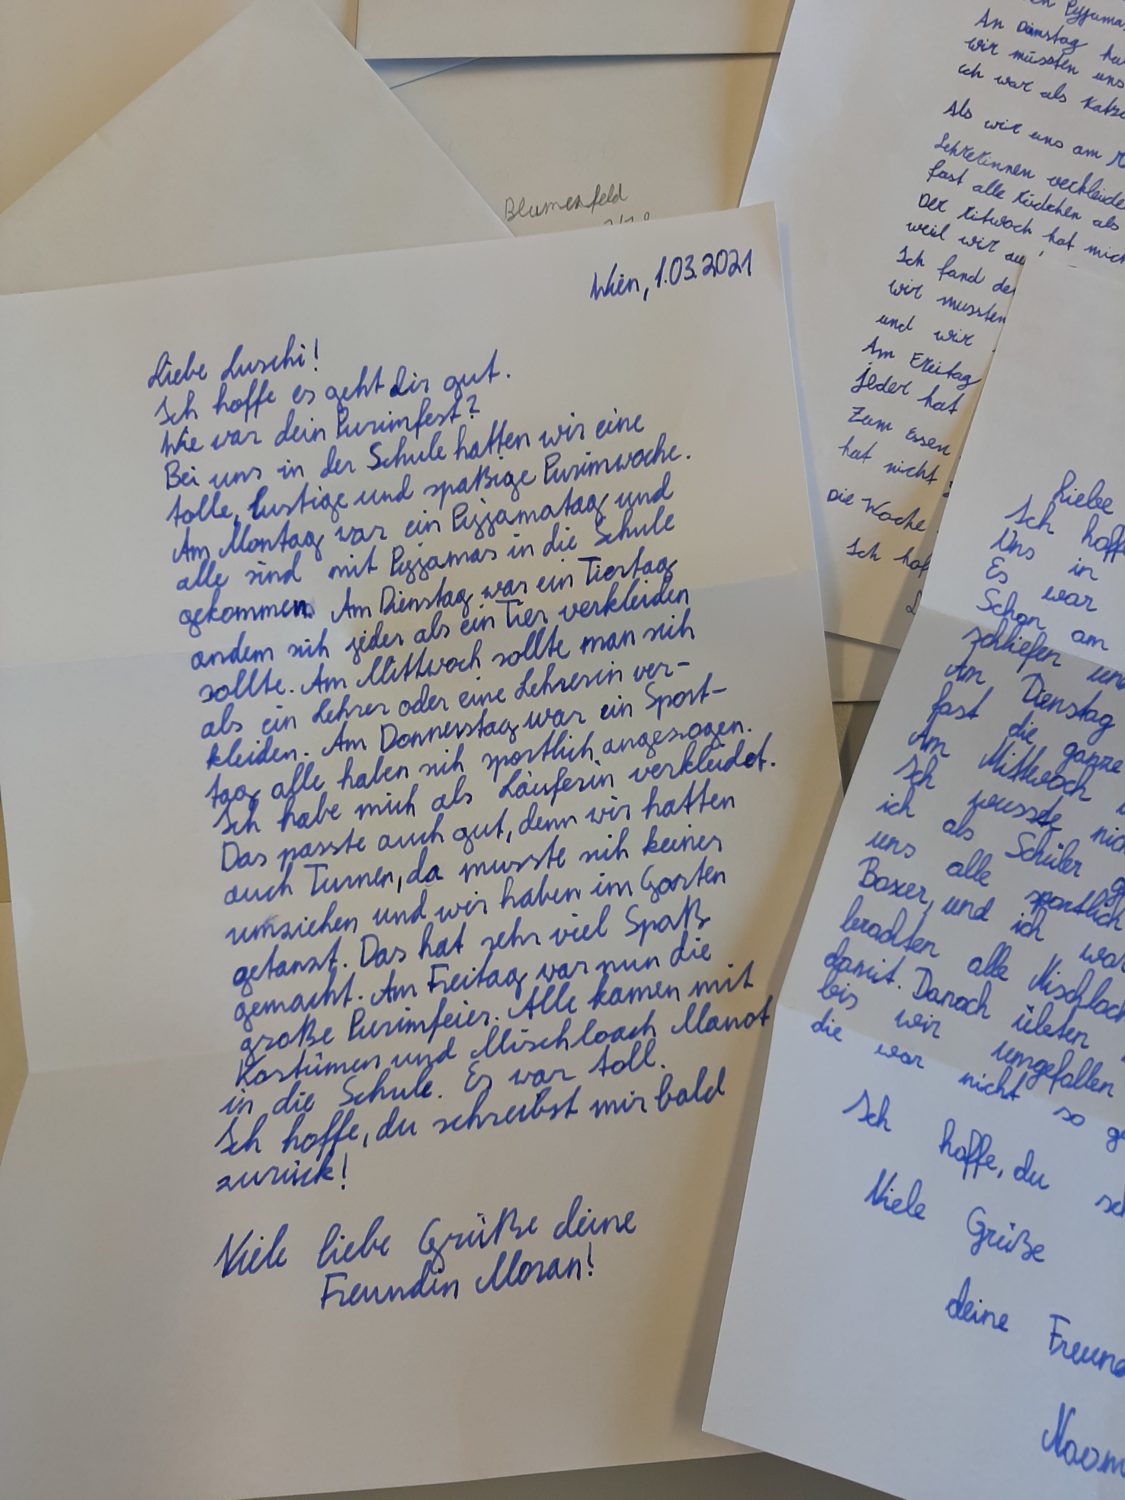 Blumenfeld
Wien, 1.03.2021
Liebe Luschi!
Ich hoffe es geht dir gut.
Wie war dein Purimfest?
Bei uns in der Schule hatten wir eine
tolle, lustige und spaßige Purimwoche.
Am Montag war ein Pyjamatag und
alle sind mit Pyjamas in die Schule
gekommen. Am Dienstag war ein Tiertag
andem sich jeder als ein Tier verkleiden
sollte. Am Mittwoch sollte man sich
als ein Lehrer oder eine Lehrerin ver-
kleiden. Am Donnerstag war ein Sport-
tag alle haben sich sportlich angezogen.
Ich habe mich als Läuferin verkleidet.
Das passte auch gut, denn wir hatten
auch Turnen, da musste sich keiner
umziehen und wir haben im Garten
getanzt. Das hat sehr viel Spaß
gemacht. Am Freitag war nun die
große Purimfeier. Alle kamen mit
Kostümen und Mischloach Manot
in die Schule. Es war toll.
Ich hoffe, du schreibst mir bald
zurück!
Viele liebe Grüße deine
Freundin Moran!
An Dinstag
wir müssten uns
ich war als Katze
Als wir uns am
Lehrerinnen verkleide
fast alle Mädchen als
Der Mitwoch hat mich
weil wir
Ich fand de
wir mussten
und wir
Am Freitag
jeder hat
Zum Essen
hat nicht
Die Woche
Ich hof
Liebe
Ich hoff
Uns in
Es war
Schon am
schliefen und
Am Dienstag
fast die ganze
Am Mittwoch
Ich wusste nich
ich als Schüler
uns alle sportlich
Boxer, und ich war
brachten alle Mischloch
damit. Danach übten
bis wir umgefallen
die war nicht so g
Ich hoffe, du sc
Viele Grüße
deine Freund
Noom